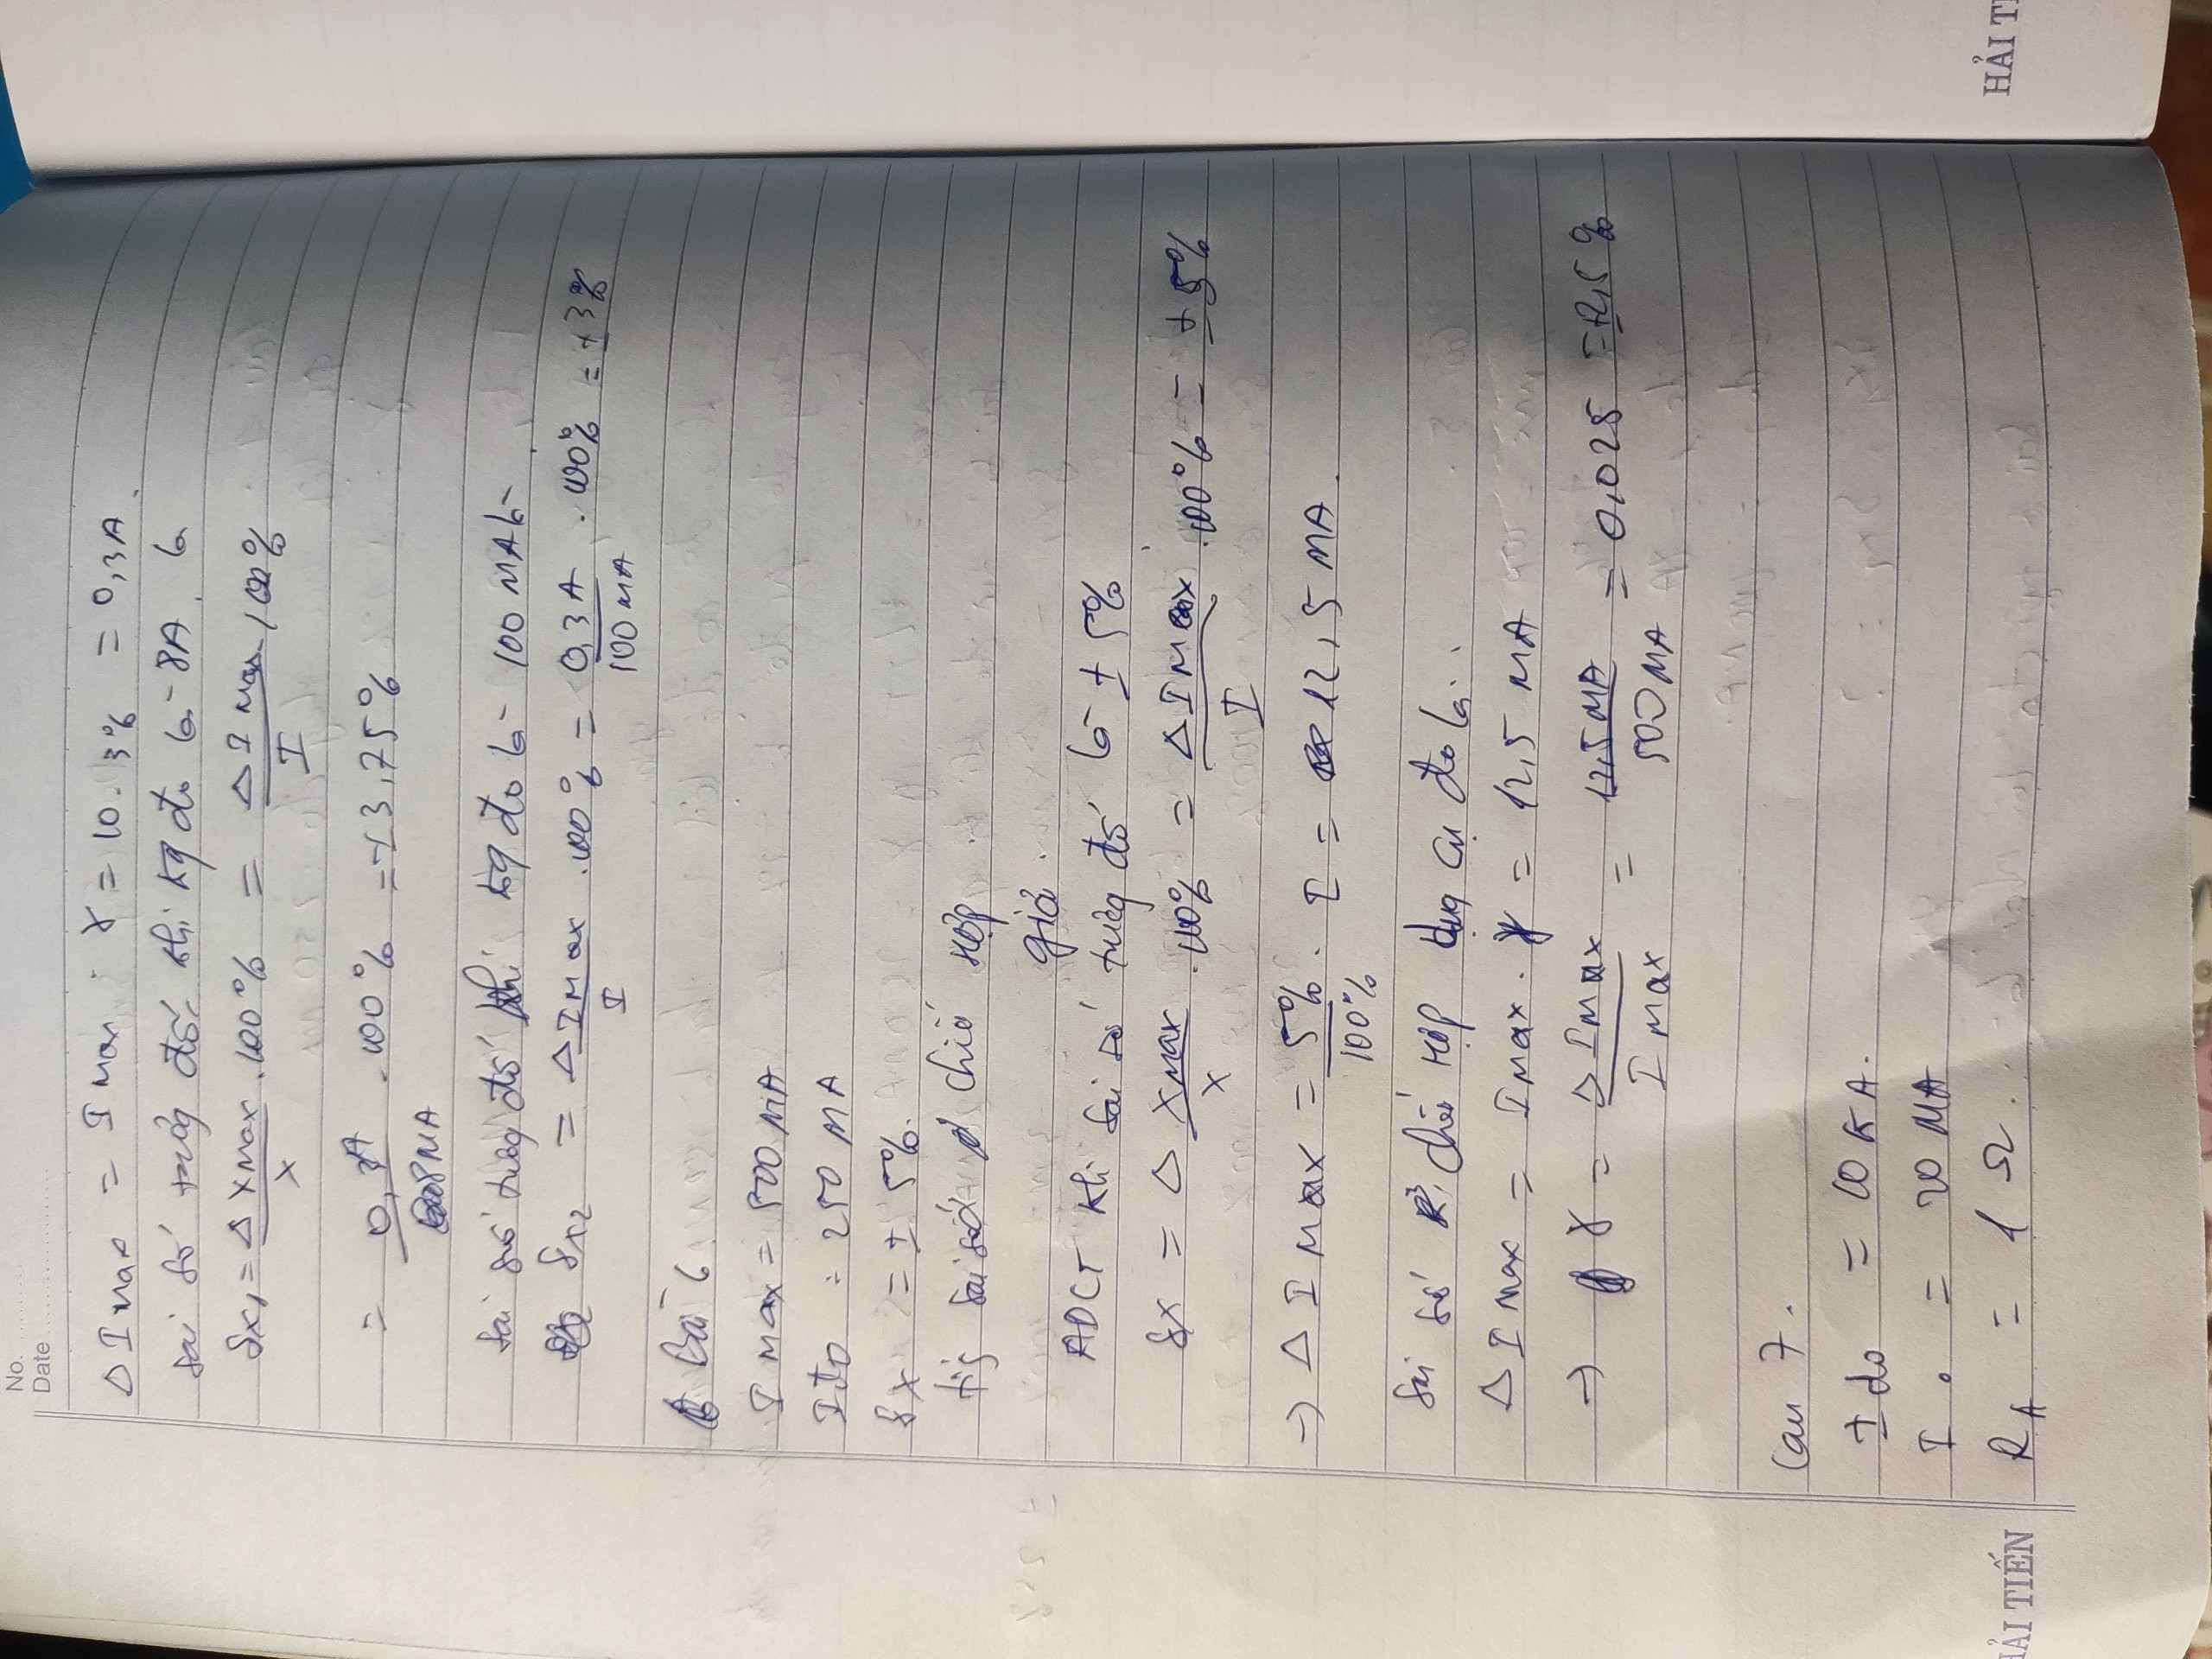 No. ..........
Date ....................
Δ I max = I max . γ = 10. 3% = 0,3A.
sai số tương đối khi dg đo là 8A. là
δx₁ = Δ X Max / X .100% = Δ I Max / I .100%
= 0,3A / 8MA .100% = ±3,75%
sai số tương đối khi dg đo là 100 MA là
δx2 = Δ I Max / I .100% = 0,3 A / 100 MA . 100% = ±3%
Bài 6.
I max = 500 MA
I đo = 250 MA
δx = ± 5%.
sai số chiết hợp.
giải.
ADCT khi sai số tương đối là ± 5%
δx = Δ X Max / X .100% = Δ I Max / I .100% = ±5%
→ Δ I Max = 5% / 100% . I = 12,5 MA.
sai số chiết hợp dụng cụ đo là..
Δ I Max = I Max . γ = 12,5 MA
→ γ = Δ I Max / I max = 12,5 MA / 500 MA = 0,025 = ±2,5%
Cau 7.
I do = 10 KA.
I o = 20 MA
R A = 1 Ω.
HẢI TIẾN
HẢI TI